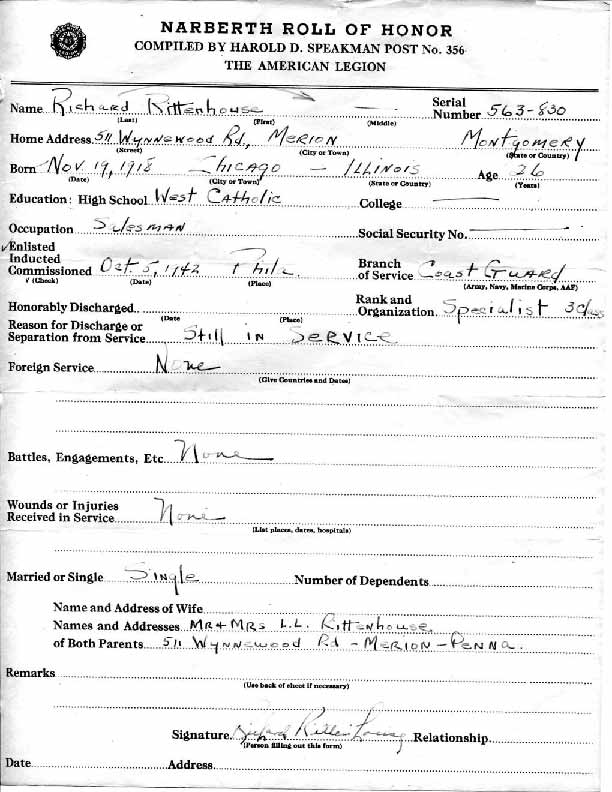 NARBERTH ROLL OF HONOR
COMPILED BY HAROLD D. SPEAKMAN POST No. 356
THE AMERICAN LEGION
Name Richard Rittenhouse — Serial Number 563-830
(Last) (First) (Middle)
Home Address 511 Wynnewood Rd, Merion Montgomery
(Street) (City or Town) (State or Country)
Born Nov 19, 1918 Chicago – Illinois Age 26
(Date) (City or Town) (State or Country) (Years)
Education: High School West Catholic College
Occupation Salesman Social Security No.
✓Enlisted
Inducted
Commissioned Oct. 5, 1942 Phila. Branch of Service Coast Guard
✓ (Check) (Date) (Place) (Army, Navy, Marine Corps, AAF)
Honorably Discharged Rank and Organization Specialist 3 class
(Date (Place)
Reason for Discharge or
Separation from Service Still in Service
Foreign Service None
(Give Countries and Dates)
Battles, Engagements, Etc. None
Wounds or Injuries
Received in Service None
(List places, dates, hospitals)
Married or Single Single Number of Dependents
Name and Address of Wife
Names and Addresses Mr + Mrs L.L. Rittenhouse
of Both Parents 511 Wynnewood Rd – Merion – Penna.
Remarks
(Use back of sheet if necessary)
Signature Richard Rittenhouse Relationship
(Person filling out this form)
Date Address